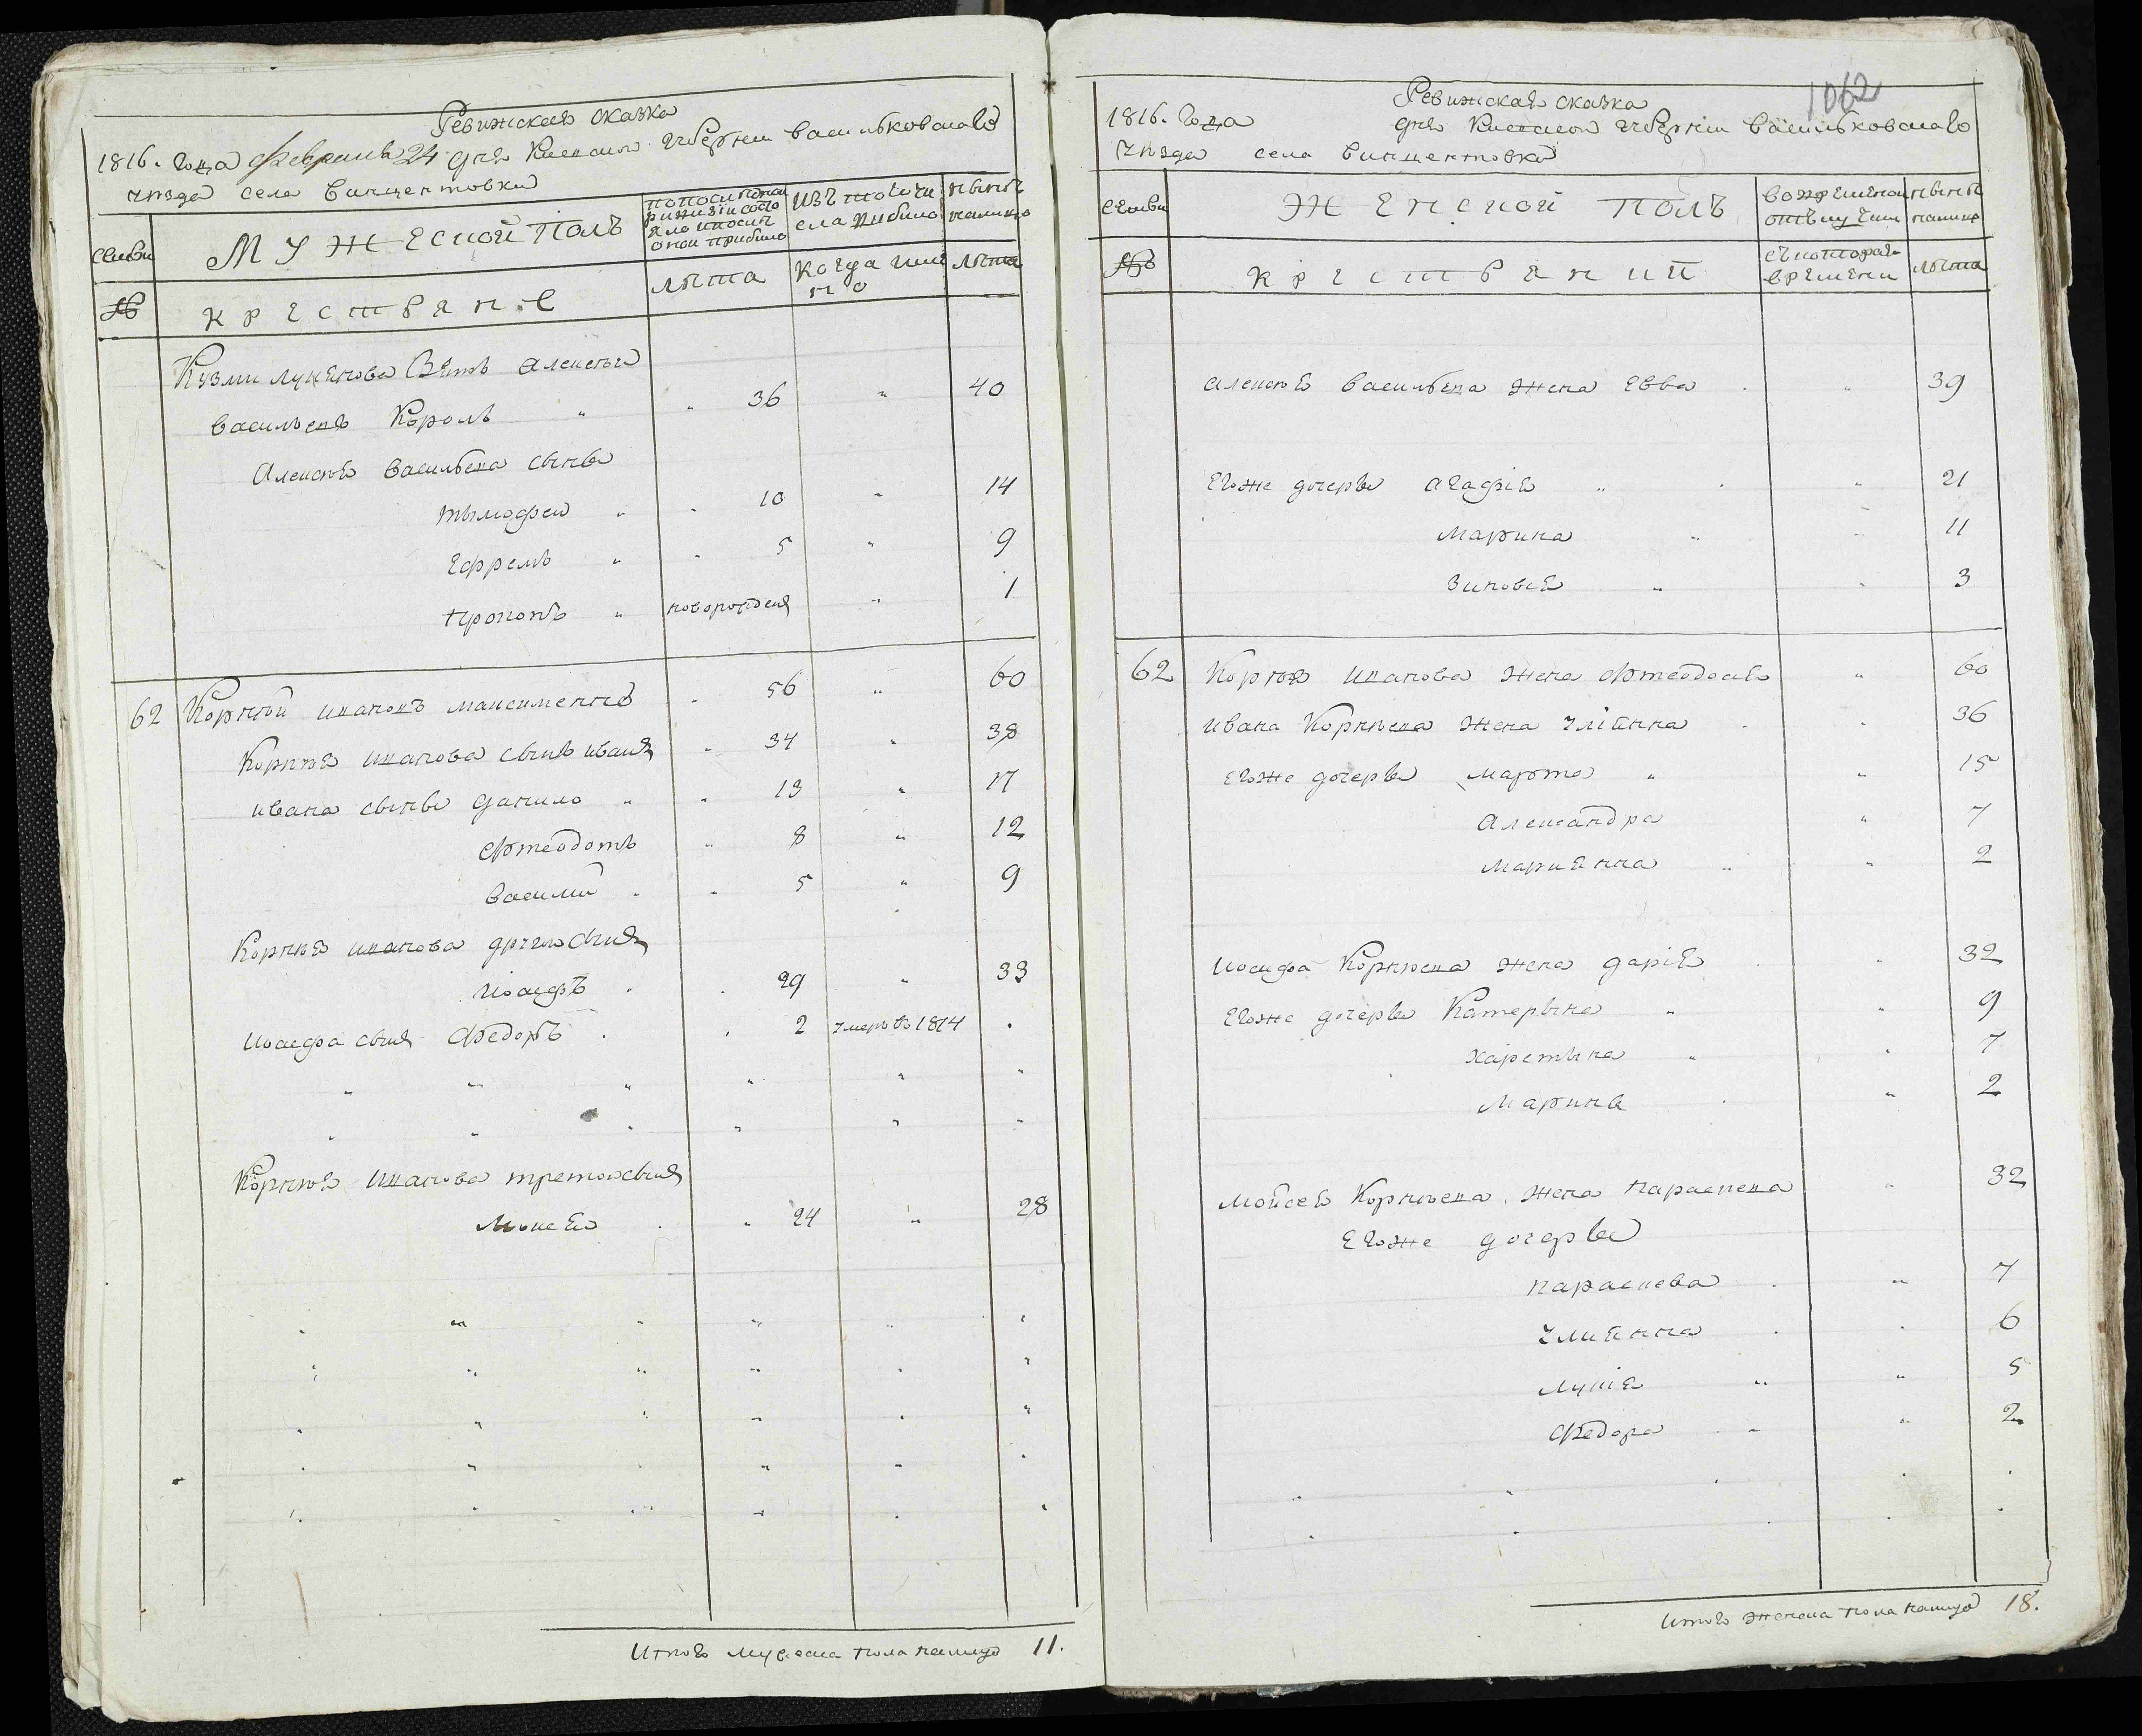 Ревижская сказка
1816. года февраля 24 дня Киевской губернии васильковскаго
уезда села винцентовки
семьи
МУЖЕСКОЙ ПОЛЪ
по последней ревизіи состояло и после оной прибило
изъ того числа выбило
ныне налицо
№
крестьяне
лѣта
когда имянно
лѣта
Кузми Луценова Зять алексей
васильевъ Король " " 36 " 40
Алексея васильева сынъ
тымофей " " 10 " 14
Ефремъ " " 5 " 9
прокопъ " новорожден " 1
62 Корнѣй ивановъ максименко " 56 " 60
Корнѣя иванова сынъ иванъ " 34 " 38
ивана сынъ данило " " 13 " 17
Фтеодотъ " 8 " 12
василій " " 5 " 9
Корнѣя иванова другий сынъ
иосифъ " " 29 " 33
иосифа сынъ Федоръ " " 2 умеръ въ 1814 "
Корнѣя иванова третой сынъ
Мысей " " 24 " 28
Итого мужеска пола налицо 11.
1062
Ревижская сказка
1816. года дня Киевской губерніи васильковскаго
уезда села винцентовки
семьи
ЖЕНСКОЙ ПОЛЪ
во временной отлучки
ныне налицо
№
крестьянки
съ которого времени
лѣта
алексея васильева жена Евва " " 39
Егоже дочеръ агафія " " " 21
Марина " " 11
Зиновія " " 3
62 Корнѣя иванова жена Фтеодосія " 60
ивана Корнѣева жена уліянна " " 36
Егоже дочеръ марта " " 15
Александра " 7
Мариянна " " 2
иосифа Корнѣева жена дарія " " 32
Егоже дочеръ Катерына " " 9
харетына " " 7
Марина " " 2
Мойсея Корнѣева жена параскева " 32
Егоже дочеръ
параскева " " 7
улиянна " " 6
лукія " " 5
Федора " " 2
Итого женска пола налицо 18.